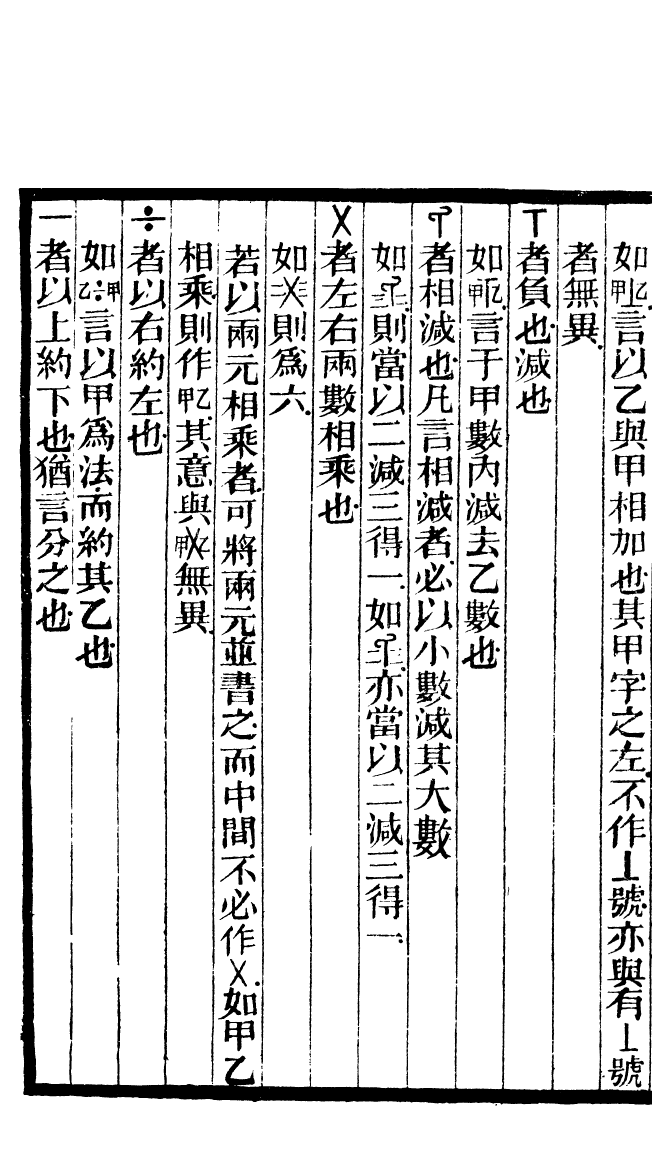 如甲⊥乙言以乙與甲相加也其甲字之左不作⊥號亦與有⊥號
者無異
丅者負也減也
如甲丅乙言于甲數內減去乙數也
者相減也凡言相減者必以小數減其大數
如則當以二減三得一如亦當以二減三得一
×者左右兩數相乘也
如二×三則爲六
若以兩元相乘者可將兩元並書之而中間不必作×如甲乙
相乘則作甲乙其意與甲×乙無異
÷者以右約左也
如乙÷甲言以甲爲法而約其乙也
一者以上約下也猶言分之也